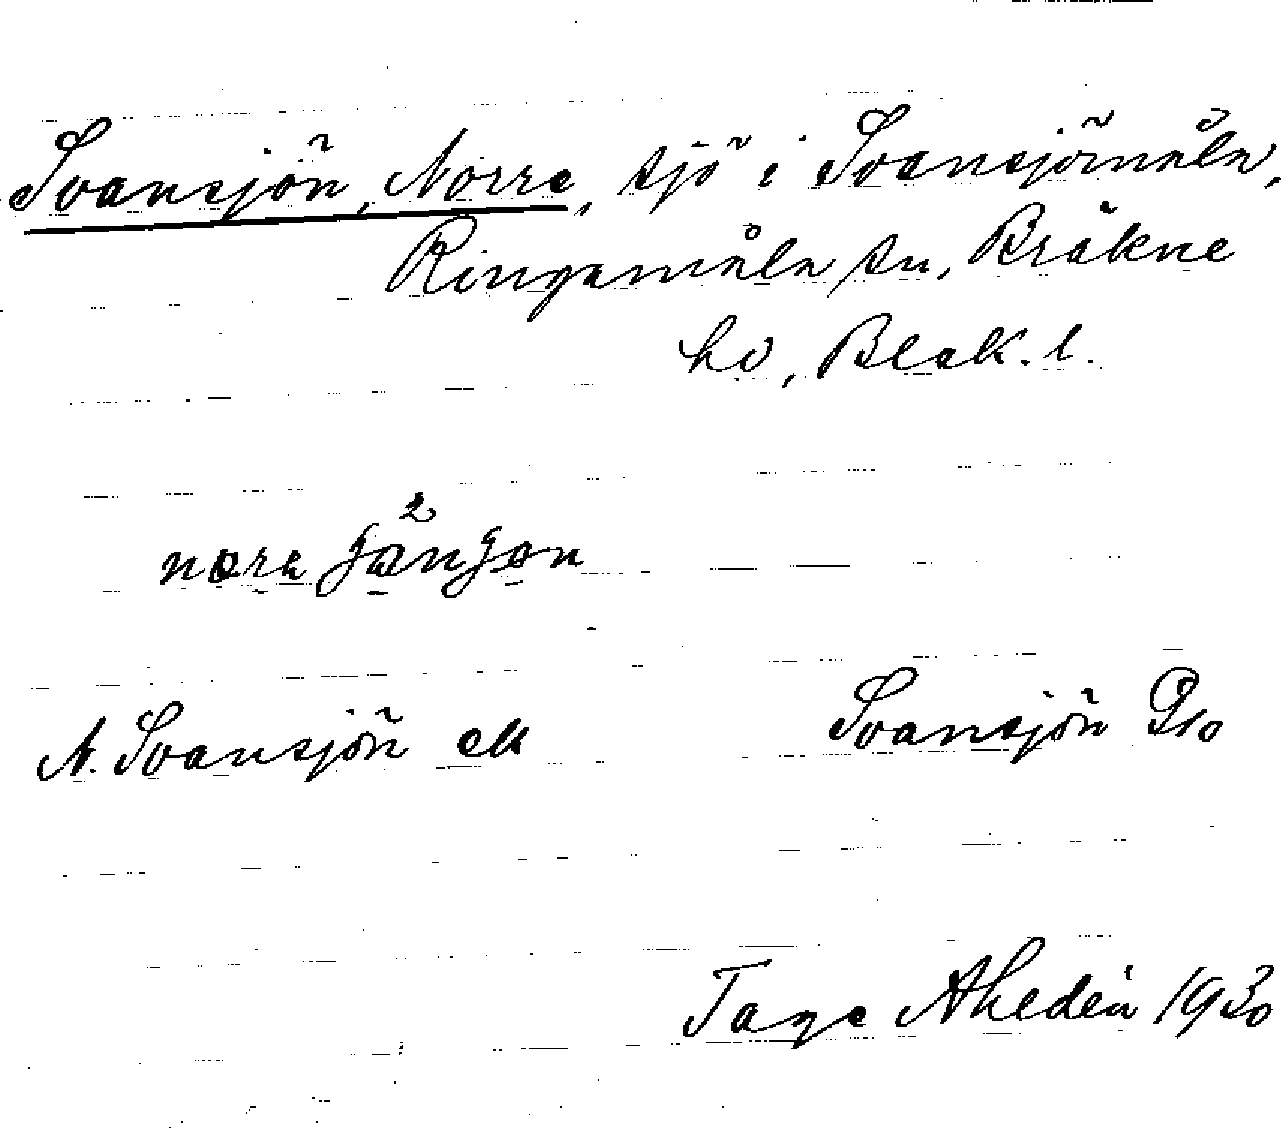 Svansjön, Norre, sjö i Svansjömåla,
Ringamåla sn, Bräkne
hd, Blek. l.
N. Svansjön ek Svansjön G10
Tage Ahedén 1930